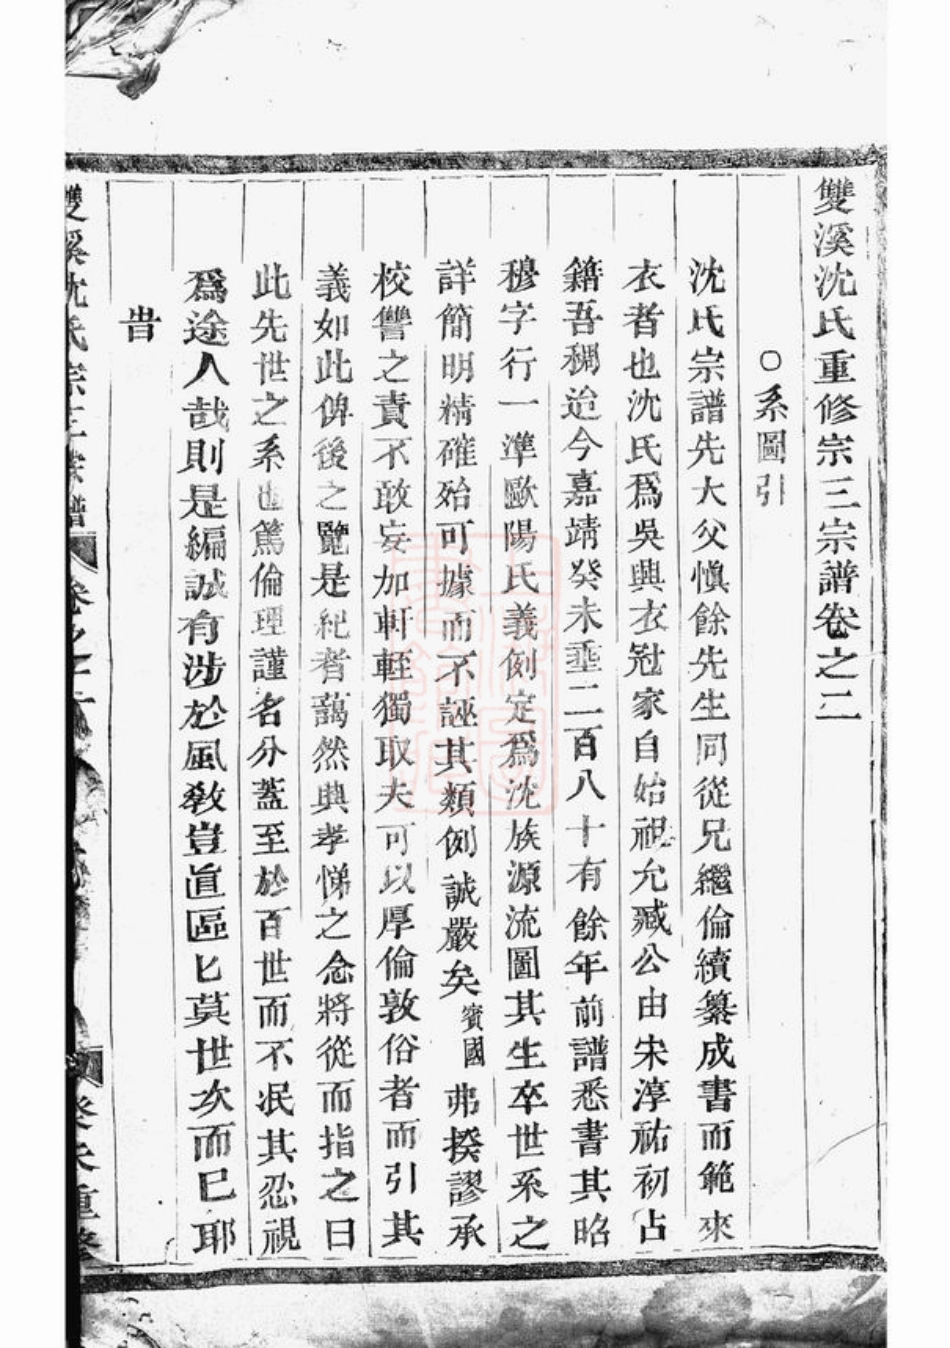 雙溪沈氏重修宗三宗譜卷之二
○系圖引
沈氏宗譜先大父愼餘先生同從兄繼倫續纂成書而範來
衣者也沈氏爲吳興衣冠家自始祖允臧公由宋淳祐初占
籍吾稠迨今嘉靖癸未垂二百八十有餘年前譜悉書其昭
穆字行一準歐陽氏義例定爲沈族源流圖其生卒世系之
詳簡明精確殆可據而不誣其類例誠嚴矣賓國弗揆謬承
校讐之責不敢妄加軒輊獨取夫可以厚倫敦俗者而引其
義如此俾後之覽是紀者藹然興孝悌之念將從而指之曰
此先世之系也篤倫理謹名分蓋至於百世而不泯其忍視
爲途人哉則是編誠有涉於風敎豈直區匕莫世次而已耶
旹
雙溪沈氏宗三宗譜 卷之二 癸未重修